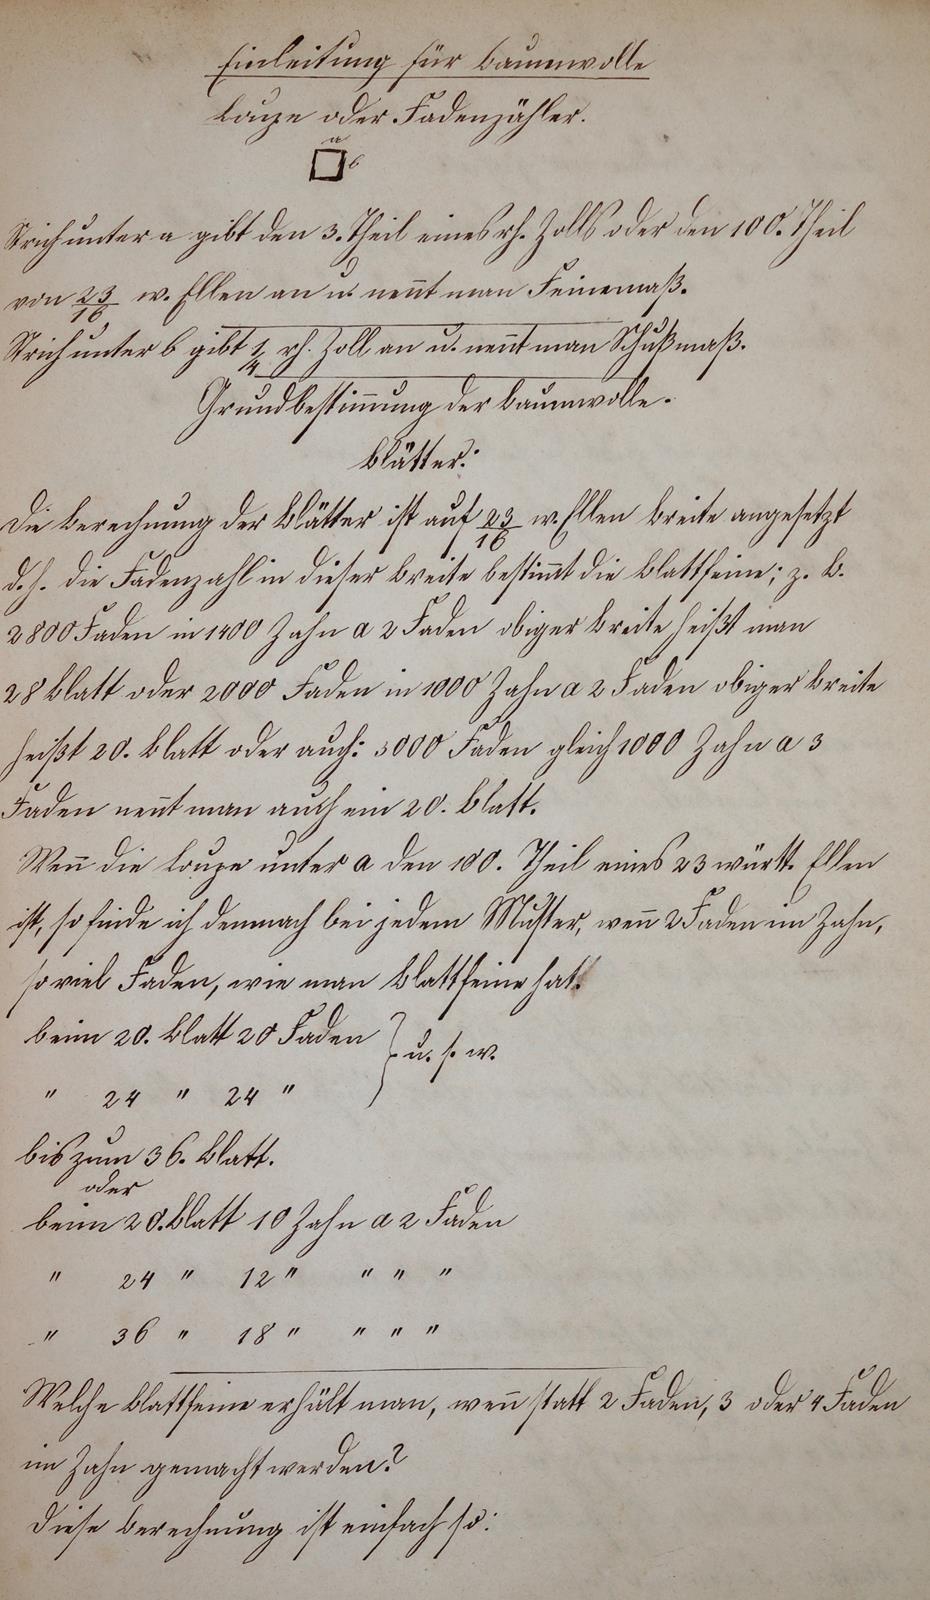 Einleitung für Baumwolle
Loupe oder Fadenzähler.
a
b
Strich unter a gibt den 3. Theil eines rh. Zolls oder den 100. Theil
von 23/16 w. Ellen an u. nen̄t man Feinemaß.
Strich unter b gibt 1/4 rh. Zoll an u. nen̄t man Schußmaß.
Grundbestim̄ung der Baumwolle-
Blätter:
Die Berechnung der Blätter ist auf 23/16 w. Ellen Breite angesetzt
d. h. die Fadenzahl in dieser Breite bestim̄t die Blattfeine; z. B.
2800 Faden in 1400 Zahn a 2 Faden obiger Breite heißt man
28 Blatt oder 2000 Faden in 1000 Zahn a 2 Faden obiger Breite
heißt 20. Blatt oder auch: 3000 Faden gleich 1000 Zahn a 3
Faden nen̄t man auch ein 20. Blatt.
Wen̄ die Loupe unter a den 100. Theil eines 23 württ. Ellen
ist, so finde ich demnach bei jedem Muster, wen̄ 2 Faden im Zahn,
soviel Faden, wie man Blattfeine hat.
beim 20. Blatt 20 Faden } u. s. w.
" 24 " 24 "
bis zum 36. Blatt.
oder
beim 20. Blatt 10 Zahn a 2 Faden
" 24 " 12 " " " "
" 36 " 18 " " " "
Welche Blattfeine erhält man, wen̄ statt 2 Faden, 3 oder 4 Faden
im Zahn gemacht werden?
Diese Berechnung ist einfach so: